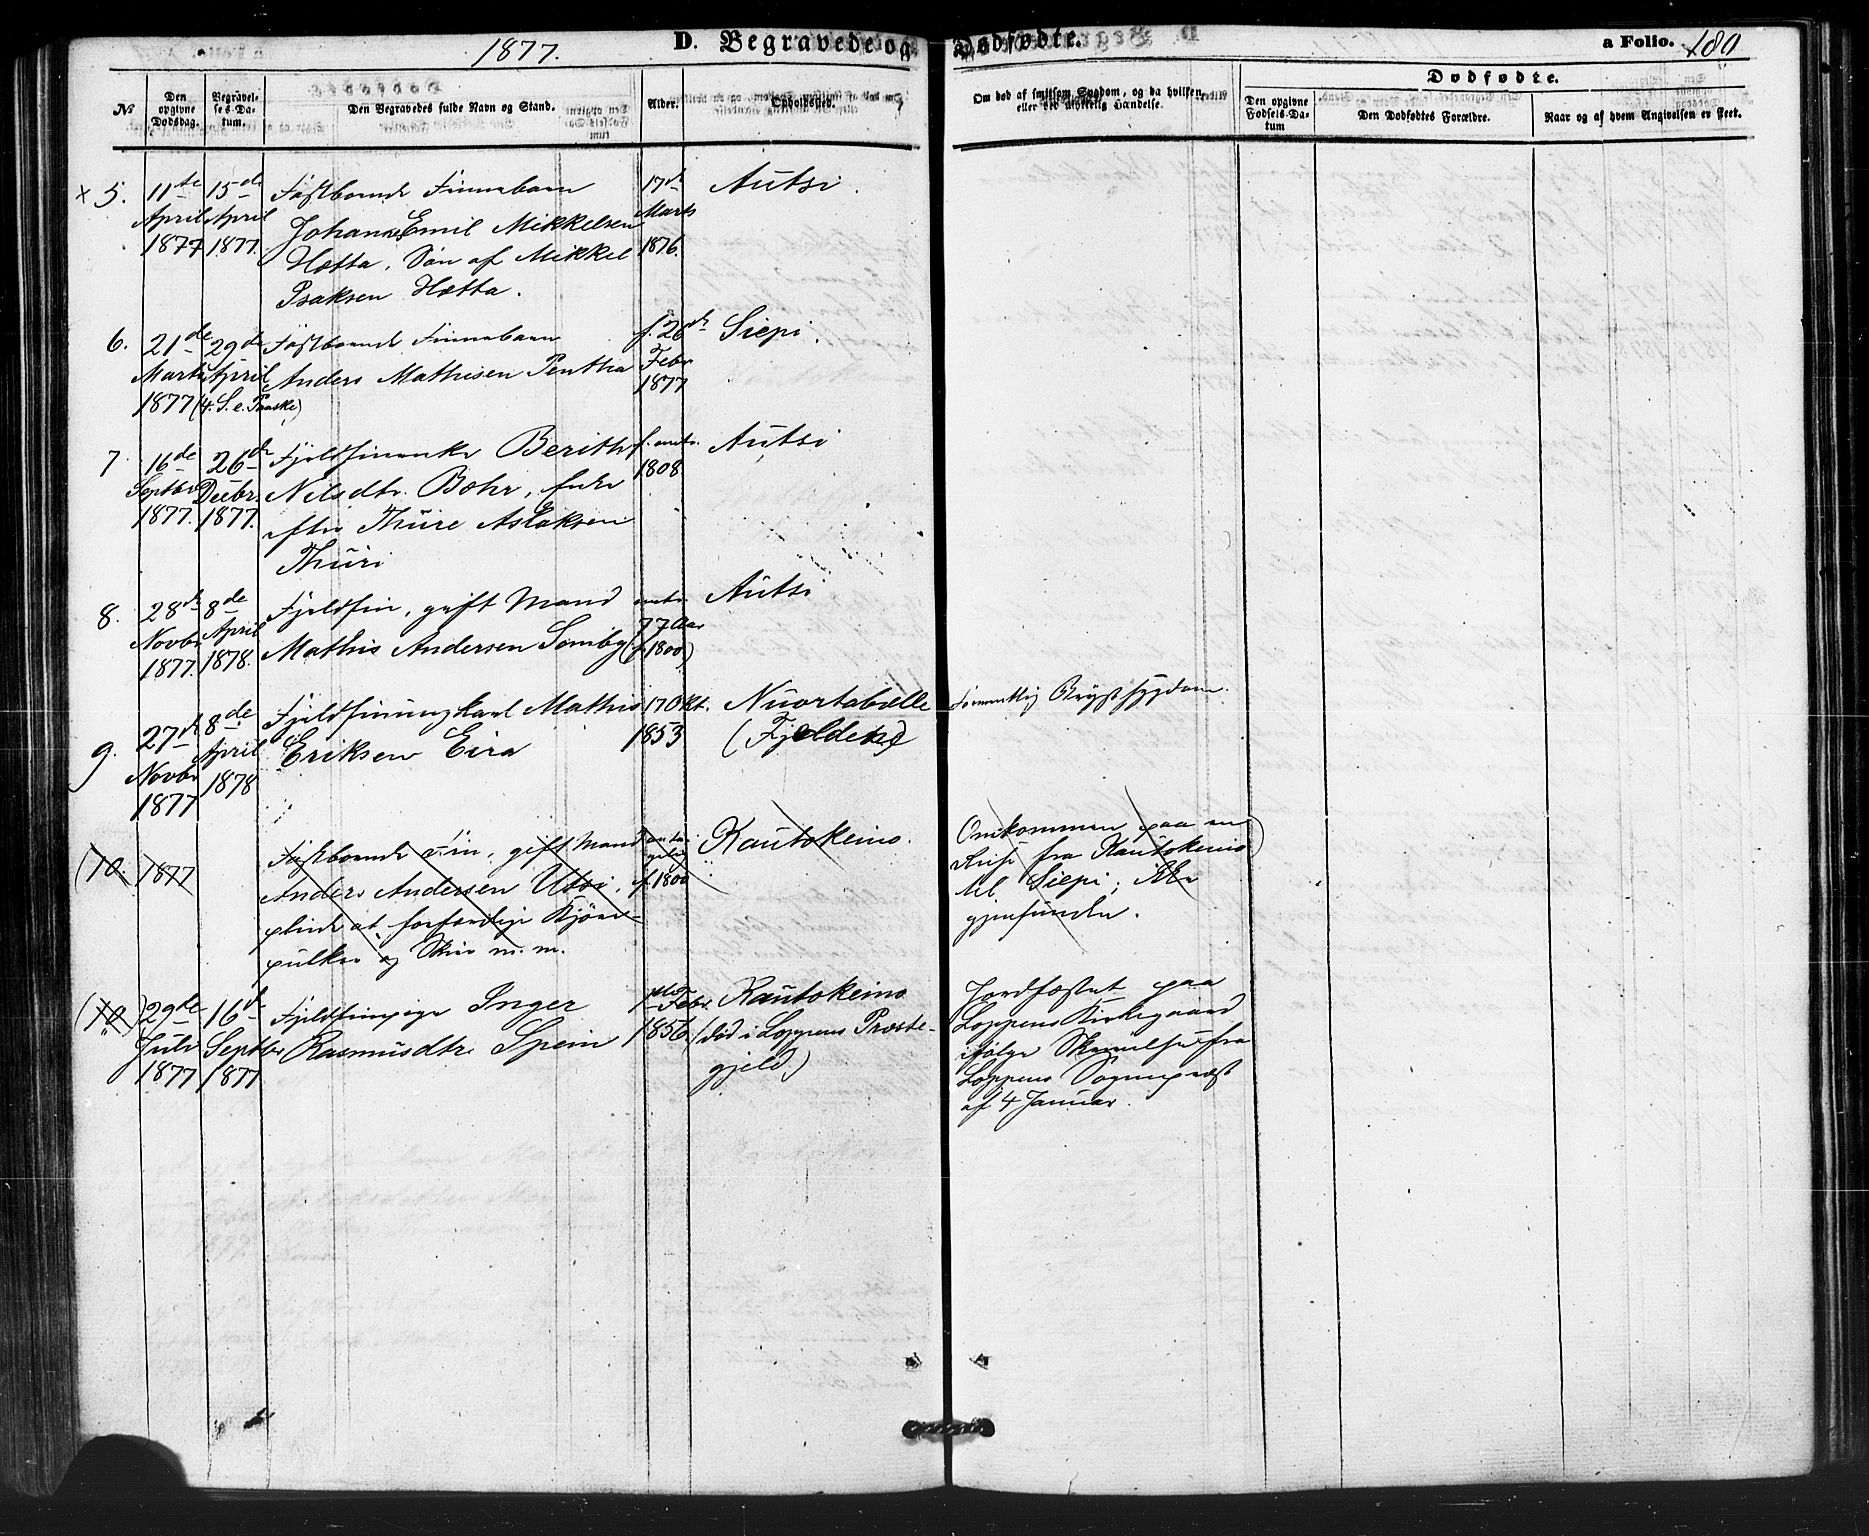 1877. D. Begravede og Dødfødte. a Folio. 180
№
Den opgivne Dødsdag.
Begravelses-Datum.
Den Begravedes fulde Navn og Stand.
Alder.
Opholdssted.
Om død af smitsom Sygdom, og da hvilken, eller ved ulykkelig Hændelse.
Dødfødte.
Den opgivne Fødsels-Datum
Den Dødfødtes Forældre.
Naar og af hvem Angivelsen er skeet.
× 5. 11te 15de Fastboende Finnebarn 17de Autsi.
April April Johannes Emil Mikkelsen Marts
1877 1877. Hætta, Søn af Mikkel 1876.
Isaksen Hætta.
6. 21de 29de Fastboende Finnebarn f. 26de Siepi.
Marts April Anders Mathisen Pentha Febr
1877 (4. S. e. Paaske) 1877
7. 16de 26de Fjeldfinenke Berith f. omtr. Autsi
Septbr Decbr. Nilsdtr. Bohr, Enke 1808.
1877. 1877. efter Thure Aslaksen
Thuri
8. 28de 8de Fjeldfin, gift Mand omtr. Autsi
Novbr April Mathis Andersen Somby 77 Aar
1877. 1878. (f. 1800)
9. 27de 8de Fjeldfinungkarl Mathis 17 Okt. Nuortabelle Formentlig Brystsygdom.
Novbr April Eriksen Eira 1853 (Fjeldene)
1877 1878
(10. 1877 Fastboende Fin, gift Mand Kautokeino. Omkommen paa en
Anders Andersen Utsi, f. 1800 Reise fra Kautokeino)
pleiede at forfærdige Kjøre- til Siepi; ikke
pulker og Skier m. m. gjenfunden.
(10.) 29de 16de Fjeldfinpige Inger 1ste Febr. Kautokeino Jordfæstet paa
Juli Septbr Rasmusdtr. Spein 1856. (død i Loppens Præste- Loppens Kirkegaard
1877 1877 gjeld) ifølge Skrivelse fra
Loppens Sogneprest
af 4 Januar.